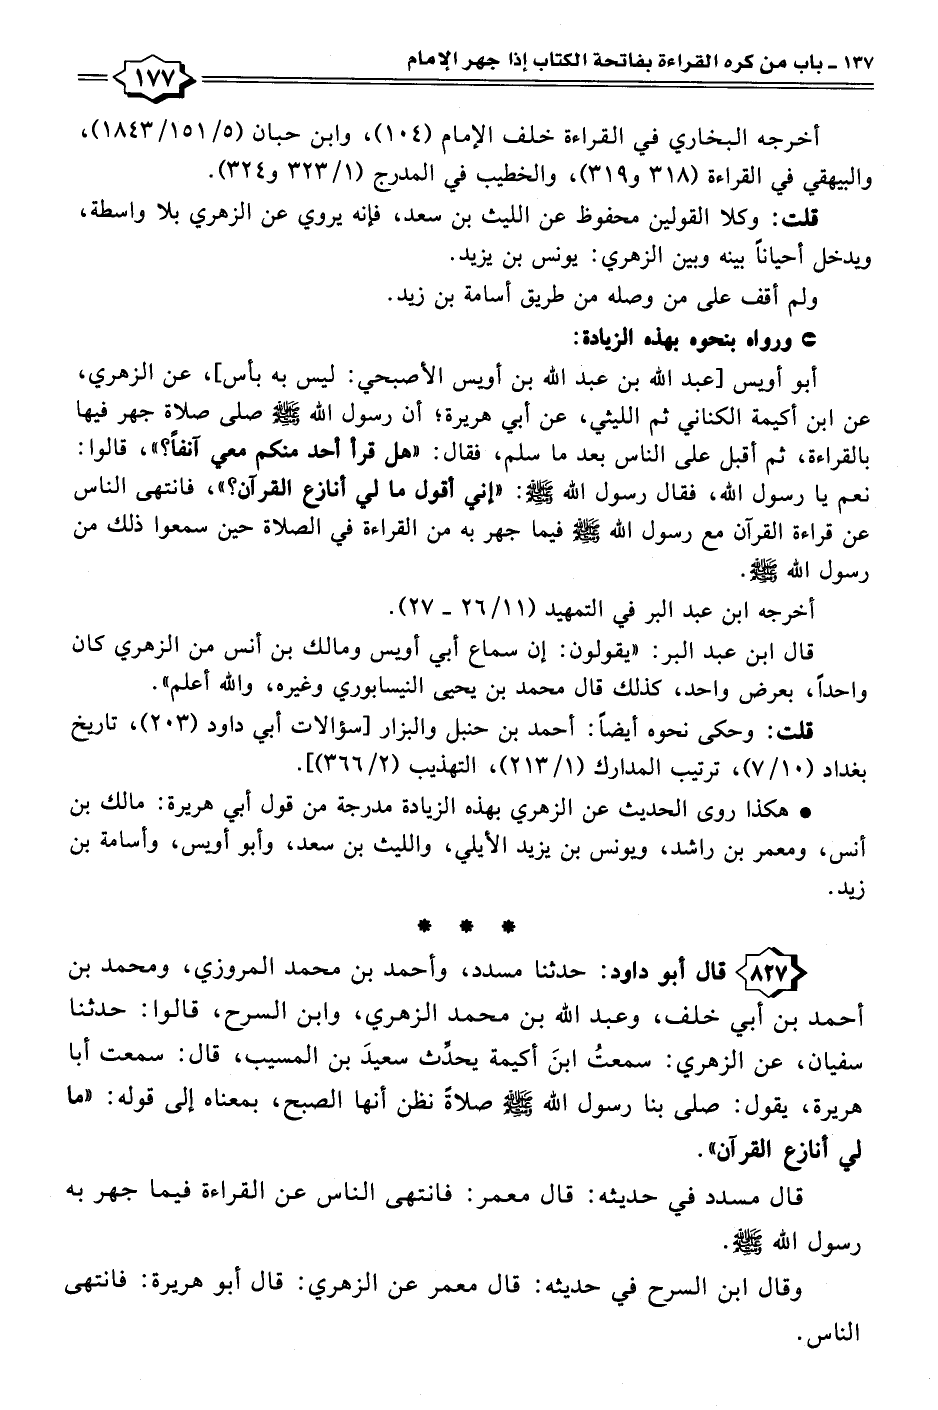 ١٣٧ - باب من كره القراءة بفاتحة الكتاب إذا جهر الإمام
١٧٧
أخرجه البخاري في القراءة خلف الإمام (١٠٤)، وابن حبان (١٨٤٣/١٥١/٥)،
والبيهقي في القراءة (٣١٨ و٣١٩)، والخطيب في المدرج (٣٢٣/١ و٣٢٤).
قلت: وكلا القولين محفوظ عن الليث بن سعد، فإنه يروي عن الزهري بلا واسطة،
ويدخل أحياناً بينه وبين الزهري: يونس بن يزيد.
ولم أقف على من وصله من طريق أسامة بن زيد.
ورواه بنحوه بهذه الزيادة:
أبو أويس [عبد الله بن عبد الله بن أويس الأصبحي: ليس به بأس]، عن الزهري،
عن ابن أكيمة الكناني ثم الليثي، عن أبي هريرة؛ أن رسول الله ﷺ صلى صلاة جهر فيها
بالقراءة، ثم أقبل على الناس بعد ما سلم، فقال: «هل قرأ أحد منكم معي آنفاً؟»، قالوا:
نعم يا رسول الله، فقال رسول الله ﷺ: «إني أقول ما لي أنازع القرآن؟»، فانتهى الناس
عن قراءة القرآن مع رسول الله ﷺ فيما جهر به من القراءة في الصلاة حين سمعوا ذلك من
رسول الله ﷺ.
أخرجه ابن عبد البر في التمهيد (٢٦/١١ - ٢٧).
قال ابن عبد البر: «يقولون: إن سماع أبي أويس ومالك بن أنس من الزهري كان
واحداً، بعرض واحد، كذلك قال محمد بن يحيى النيسابوري وغيره، والله أعلم».
قلت: وحكى نحوه أيضاً: أحمد بن حنبل والبزار [سؤالات أبي داود (٢٠٣)، تاريخ
بغداد (٧/١٠)، ترتيب المدارك (٢١٣/١)، التهذيب (٣٦٦/٢)].
• هكذا روى الحديث عن الزهري بهذه الزيادة مدرجة من قول أبي هريرة: مالك بن
أنس، ومعمر بن راشد، ويونس بن يزيد الأيلي، والليث بن سعد، وأبو أويس، وأسامة بن
زيد.
* * *
٨٢٧ قال أبو داود: حدثنا مسدد، وأحمد بن محمد المروزي، ومحمد بن
أحمد بن أبي خلف، وعبد الله بن محمد الزهري، وابن السرح، قالوا: حدثنا
سفيان، عن الزهري: سمعتُ ابنَ أكيمة يحدِّث سعيدَ بن المسيب، قال: سمعت أبا
هريرة، يقول: صلى بنا رسول الله ﷺ صلاةً نظن أنها الصبح، بمعناه إلى قوله: «ما
لي أنازع القرآن».
قال مسدد في حديثه: قال معمر: فانتهى الناس عن القراءة فيما جهر به
رسول الله ﷺ.
وقال ابن السرح في حديثه: قال معمر عن الزهري: قال أبو هريرة: فانتهى
الناس.